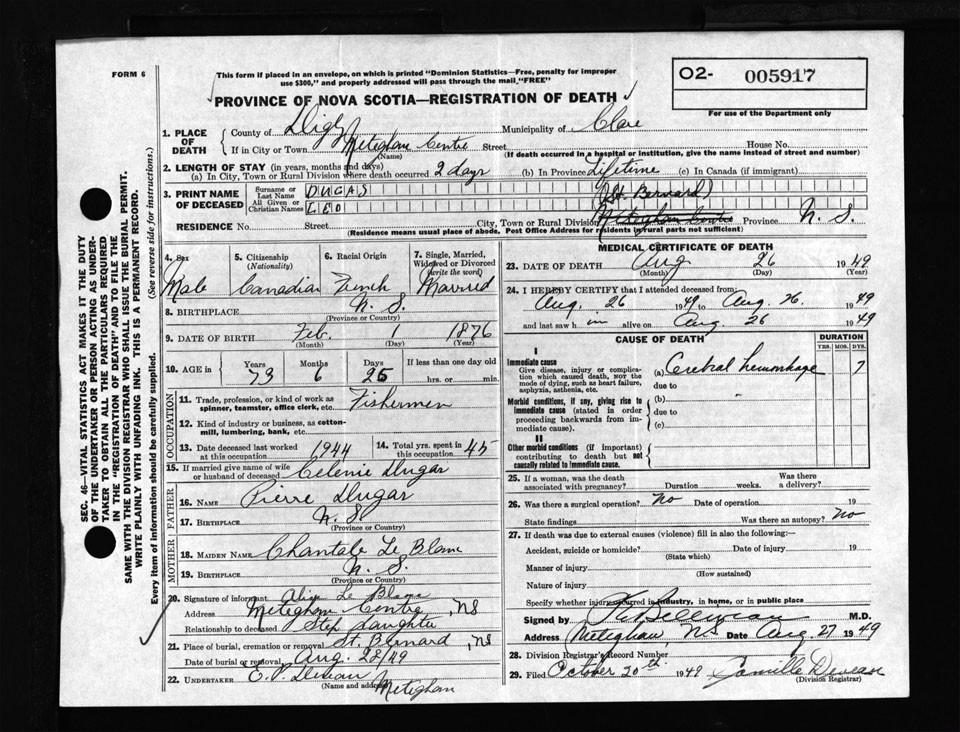 FORM 6
This form if placed in an envelope, on which is printed "Dominion Statistics—Free, penalty for improper
use $300," and properly addressed will pass through the mail "FREE"
O2- 005917
For use of the Department only
PROVINCE OF NOVA SCOTIA—REGISTRATION OF DEATH
1. PLACE OF DEATH
County of Digby Municipality of Clare
If in City or Town Meteghan Centre Street House No.
(Name) (If death occurred in a hospital or institution, give the name instead of street and number)
2. LENGTH OF STAY (in years, months and days)
(a) In City, Town or Rural Division where death occurred 2 days (b) In Province Lifetime (c) In Canada (if immigrant)
3. PRINT NAME OF DECEASED
Surname or Last Name DUGAS
All Given or Christian Names LEO
(St. Bernard)
RESIDENCE No. Street City, Town or Rural Division Meteghan Centre Province N. S.
(Residence means usual place of abode. Post Office Address for residents in rural parts not sufficient)
4. Sex Male
5. Citizenship (Nationality) Canadian
6. Racial Origin French
7. Single, Married, Widowed or Divorced (write the word) Married
8. BIRTHPLACE N. S.
(Province or Country)
9. DATE OF BIRTH Feb. 1 1876
(Month) (Day) (Year)
10. AGE in Years 73 Months 6 Days 25 If less than one day old hrs. or min.
OCCUPATION
11. Trade, profession, or kind of work as spinner, teamster, office clerk, etc. Fishermen
12. Kind of industry or business, as cotton-mill, lumbering, bank, etc.
13. Date deceased last worked at this occupation 1944
14. Total yrs. spent in this occupation 45
15. If married give name of wife or husband of deceased Celenie Dugas
FATHER
16. NAME Pierre Dugas
17. BIRTHPLACE N. S.
(Province or Country)
MOTHER
18. MAIDEN NAME Chantale Le Blanc
19. BIRTHPLACE N. S.
(Province or Country)
20. Signature of informant Le Blanc
Address Meteghan Centre, NS
Relationship to deceased Step daughter
21. Place of burial, cremation or removal St. Bernard, NS
Date of burial or removal Aug. 28/49
22. UNDERTAKER E. P.
(Name and address) Meteghan
MEDICAL CERTIFICATE OF DEATH
23. DATE OF DEATH Aug 26 1949
(Month) (Day) (Year)
24. I HEREBY CERTIFY that I attended deceased from:
Aug. 26 1949 to Aug. 26. 1949
and last saw h im alive on Aug. 26 1949
CAUSE OF DEATH
DURATION
YRS. MOS. DYS.
I
Immediate cause
Give disease, injury or complication which caused death, not the mode of dying, such as heart failure, asphyxia, asthenia, etc.
(a) Cerebral hemorrhage 7
due to
Morbid conditions, if any, giving rise to immediate cause (stated in order proceeding backwards from immediate cause).
(b)
due to
(c)
II
Other morbid conditions (if important) contributing to death but not causally related to immediate cause.
25. If a woman, was the death associated with pregnancy? Duration weeks. Was there a delivery?
26. Was there a surgical operation? No Date of operation 19
State findings Was there an autopsy? No
27. If death was due to external causes (violence) fill in also the following:—
Accident, suicide or homicide? Date of injury 19
(State which)
Manner of injury
(How sustained)
Nature of injury
Specify whether injury occurred in industry, in home, or in public place
Signed by M.D.
Address Meteghan, NS Date Aug 27 1949
28. Division Registrar's Record Number
29. Filed October 20th 1949 Camille
(Division Registrar)
SEC. 46—VITAL STATISTICS ACT MAKES IT THE DUTY
OF THE UNDERTAKER OR PERSON ACTING AS UNDER-
TAKER TO OBTAIN ALL THE PARTICULARS REQUIRED
IN THE "REGISTRATION OF DEATH" AND TO FILE THE
SAME WITH THE DIVISION REGISTRAR WHO SHALL ISSUE THE BURIAL PERMIT.
WRITE PLAINLY WITH UNFADING INK. THIS IS A PERMANENT RECORD.
Every item of information should be carefully supplied. (See reverse side for instructions.)